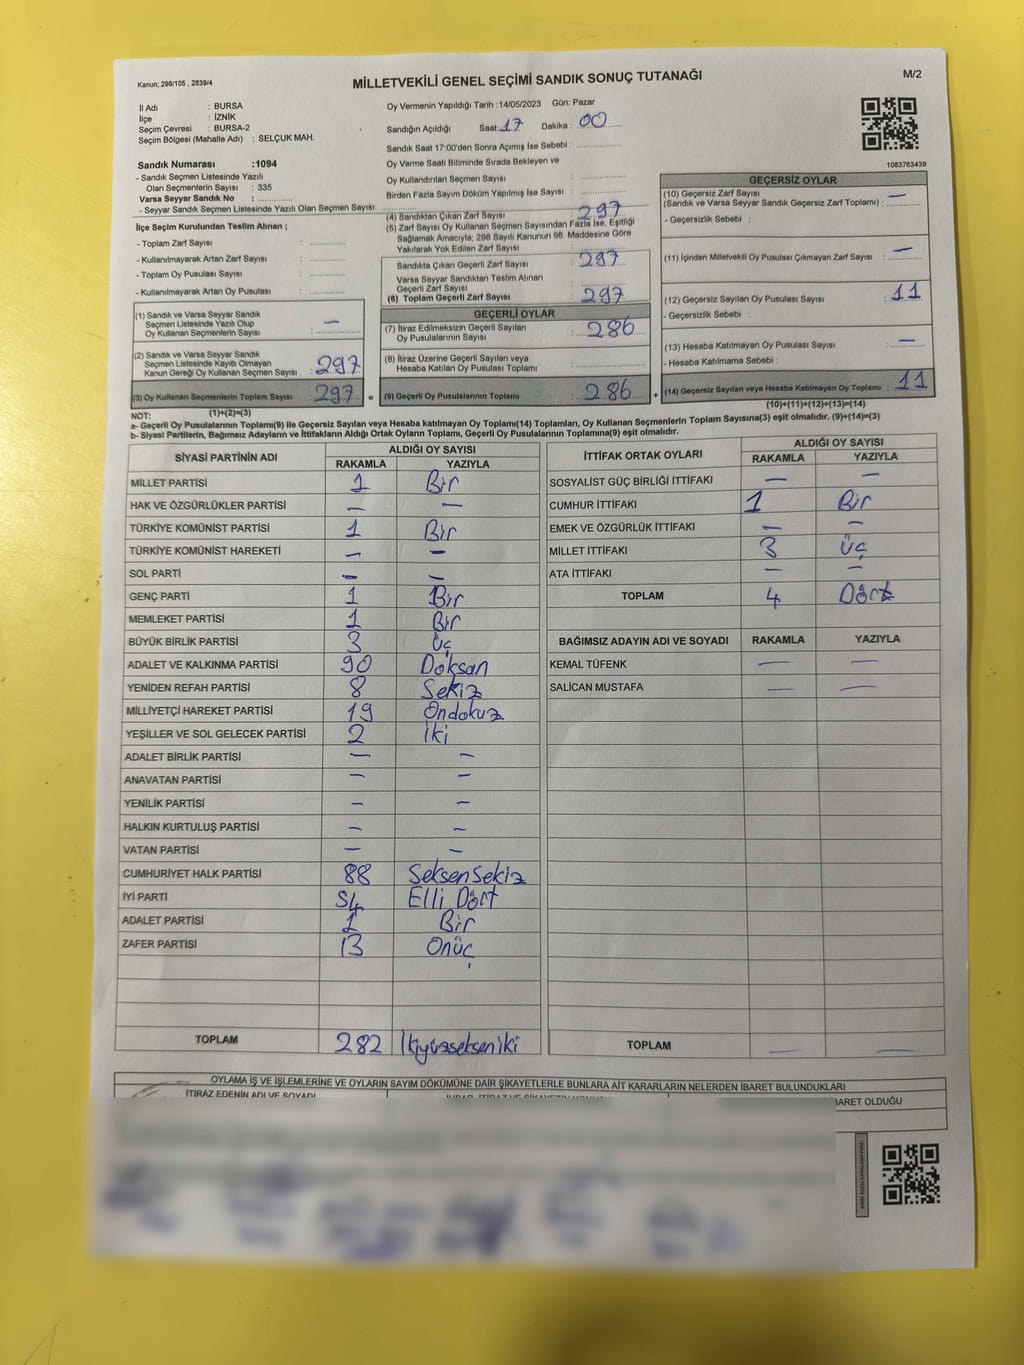 Kanun; 298/105 , 2839/4
MİLLETVEKİLİ GENEL SEÇİMİ SANDIK SONUÇ TUTANAĞI
M/2
İl Adı : BURSA
İlçe : İZNİK
Seçim Çevresi : BURSA-2
Seçim Bölgesi (Mahalle Adı) : SELÇUK MAH.
Sandık Numarası :1094
- Sandık Seçmen Listesinde Yazılı
Olan Seçmenlerin Sayısı : 335
Varsa Seyyar Sandık No :
- Seyyar Sandık Seçmen Listesinde Yazılı Olan Seçmen Sayısı:
İlçe Seçim Kurulundan Teslim Alınan ;
- Toplam Zarf Sayısı :
- Kullanılmayarak Artan Zarf Sayısı :
- Toplam Oy Pusulası Sayısı :
- Kullanılmayarak Artan Oy Pusulası :
(1) Sandık ve Varsa Seyyar Sandık
Seçmen Listesinde Yazılı Olup
Oy Kullanan Seçmenlerin Sayısı : —
(2) Sandık ve Varsa Seyyar Sandık
Seçmen Listesinde Kayıtlı Olmayan
Kanun Gereği Oy Kullanan Seçmen Sayısı : 297
(3) Oy Kullanan Seçmenlerin Toplam Sayısı : 297
(1)+(2)=(3)
Oy Vermenin Yapıldığı Tarih :14/05/2023 Gün: Pazar
Sandığın Açıldığı Saat: 17 Dakika : 00
Sandık Saat 17:00'den Sonra Açımış İse Sebebi :
Oy Verme Saati Bitiminde Sırada Bekleyen ve
Oy Kullandırılan Seçmen Sayısı :
Birden Fazla Sayım Döküm Yapılmış İse Sayısı :
(4) Sandıktan Çıkan Zarf Sayısı : 297
(5) Zarf Sayısı Oy Kullanan Seçmen Sayısından Fazla İse, Eşitliği
Sağlamak Amacıyla, 298 Sayılı Kanunun 98. Maddesine Göre
Yakılarak Yok Edilen Zarf Sayısı :
Sandıkta Çıkan Geçerli Zarf Sayısı : 297
Varsa Seyyar Sandıktan Teslim Alınan
Geçerli Zarf Sayısı :
(6) Toplam Geçerli Zarf Sayısı : 297
GEÇERLİ OYLAR
(7) İtiraz Edilmeksizin Geçerli Sayılan
Oy Pusulalarının Sayısı : 286
(8) İtiraz Üzerine Geçerli Sayılan veya
Hesaba Katılan Oy Pusulası Toplamı :
= (9) Geçerli Oy Pusulalarının Toplamı : 286 +
1083763439
GEÇERSİZ OYLAR
(10) Geçersiz Zarf Sayısı —
(Sandık ve Varsa Seyyar Sandık Geçersiz Zarf Toplamı) :
- Geçersizlik Sebebi :
(11) İçinden Milletvekili Oy Pusulası Çıkmayan Zarf Sayısı : —
(12) Geçersiz Sayılan Oy Pusulası Sayısı : 11
- Geçersizlik Sebebi :
(13) Hesaba Katılmayan Oy Pusulası Sayısı : —
- Hesaba Katılmama Sebebi :
(14) Geçersiz Sayılan veya Hesaba Katılmayan Oy Toplamı : 11
(10)+(11)+(12)+(13)=(14)
NOT:
a- Geçerli Oy Pusulaları Toplamı(9) ile Geçersiz Sayılan veya Hesaba katılmayan Oy Toplamı(14) Toplamları, Oy Kullanan Seçmenlerin Toplam Sayısına(3) eşit olmalıdır. (9)+(14)=(3)
b- Siyasi Partilerin, Bağımsız Adayların ve İttifakların Aldığı Ortak Oyların Toplamı, Geçerli Oy Pusulalarının Toplamına(9) eşit olmalıdır.
SİYASİ PARTİNİN ADI ALDIĞI OY SAYISI
RAKAMLA YAZIYLA
MİLLET PARTİSİ 1 Bir
HAK VE ÖZGÜRLÜKLER PARTİSİ — —
TÜRKİYE KOMÜNİST PARTİSİ 1 Bir
TÜRKİYE KOMÜNİST HAREKETİ — —
SOL PARTİ — —
GENÇ PARTİ 1 Bir
MEMLEKET PARTİSİ 1 Bir
BÜYÜK BİRLİK PARTİSİ 3 Üç
ADALET VE KALKINMA PARTİSİ 90 Doksan
YENİDEN REFAH PARTİSİ 8 Sekiz
MİLLİYETÇİ HAREKET PARTİSİ 19 Ondokuz
YEŞİLLER VE SOL GELECEK PARTİSİ 2 İki
ADALET BİRLİK PARTİSİ — —
ANAVATAN PARTİSİ — —
YENİLİK PARTİSİ — —
HALKIN KURTULUŞ PARTİSİ — —
VATAN PARTİSİ — —
CUMHURİYET HALK PARTİSİ 88 SeksenSekiz
İYİ PARTİ 54 Elli Dört
ADALET PARTİSİ 1 Bir
ZAFER PARTİSİ 13 Onüç
TOPLAM 282 İkiyüzsekseniki
İTTİFAK ORTAK OYLARI ALDIĞI OY SAYISI
RAKAMLA YAZIYLA
SOSYALİST GÜÇ BİRLİĞİ İTTİFAKI — —
CUMHUR İTTİFAKI 1 Bir
EMEK VE ÖZGÜRLÜK İTTİFAKI — —
MİLLET İTTİFAKI 3 Üç
ATA İTTİFAKI — —
TOPLAM 4 Dört
BAĞIMSIZ ADAYIN ADI VE SOYADI RAKAMLA YAZIYLA
KEMAL TÜFENK — —
SALİCAN MUSTAFA — —
TOPLAM — —
OYLAMA İŞ VE İŞLEMLERİNE VE OYLARIN SAYIM DÖKÜMÜNE DAİR ŞİKAYETLERLE BUNLARA AİT KARARLARIN NELERDEN İBARET BULUNDUKLARI
İTİRAZ EDENİN ADI VE SOYADI
BARET OLDUĞU